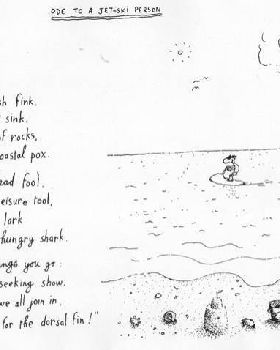 ODE TO A JET-SKI PERSON
fink.
sink.
of rocks,
coastal pox.
fool,
leisure tool,
lark
hungry shark.
you go:
seeking show.
we all join in,
for the dorsal fin!"